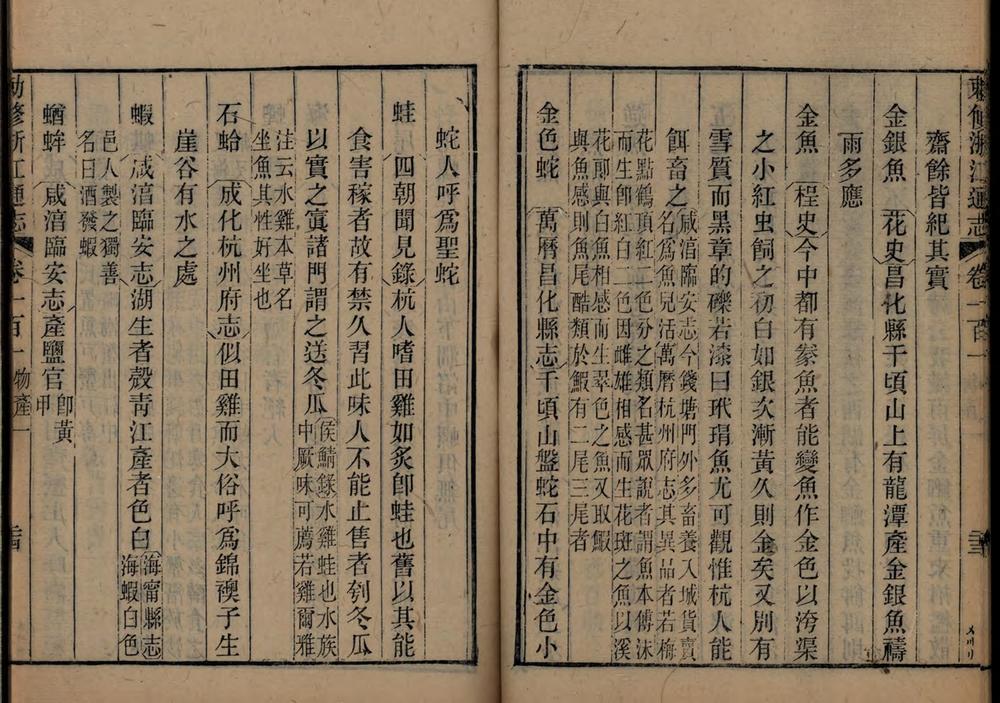 敕修浙江通志 卷一百一
齋餘皆紀其實
金銀魚 花史昌化縣千頃山上有龍潭產金銀魚禱
雨多應
金魚 桯史今中都有豢魚者能變魚作金色以洿渠
之小紅虫飼之初白如銀次漸黃久則金矣又別有
雪質而黑章的礫若漆曰玳瑁魚尤可觀惟杭人能
餌畜之
咸湻臨安志今錢塘門外多畜養入城貨賣
名爲魚兒活萬曆杭州府志其異品者若梅
花點鶴頂紅二色分之類名甚眾說者謂魚本傅沫
而生卽紅白二色因雌雄相感而生花斑之魚以溪
花卽與白魚相感而生翠色之魚又取鰕
與魚感則魚尾酷類於鰕有二尾三尾者
金色蛇 萬曆昌化縣志千頃山盤蛇石中有金色小
蛇人呼爲聖蛇
蛙 四朝聞見錄杭人嗜田雞如炙卽蛙也舊以其能
食害稼者故有禁久習此味人不能止售者刳冬瓜
以實之寘諸門謂之送冬瓜
侯鯖錄水雞蛙也水族
中厥味可薦若雞爾雅
注云水雞本草名
坐魚其性好坐也
石蛤 成化杭州府志似田雞而大俗呼爲錦襖子生
崖谷有水之處
蝦 咸湻臨安志湖生者殼青江產者色白
海甯縣志
海蝦白色
邑人製之獨善
名曰酒發蝦
蝤蛑 咸湻臨安志產鹽官
卽黃
甲
敕修浙江通志 卷一百一 物產一